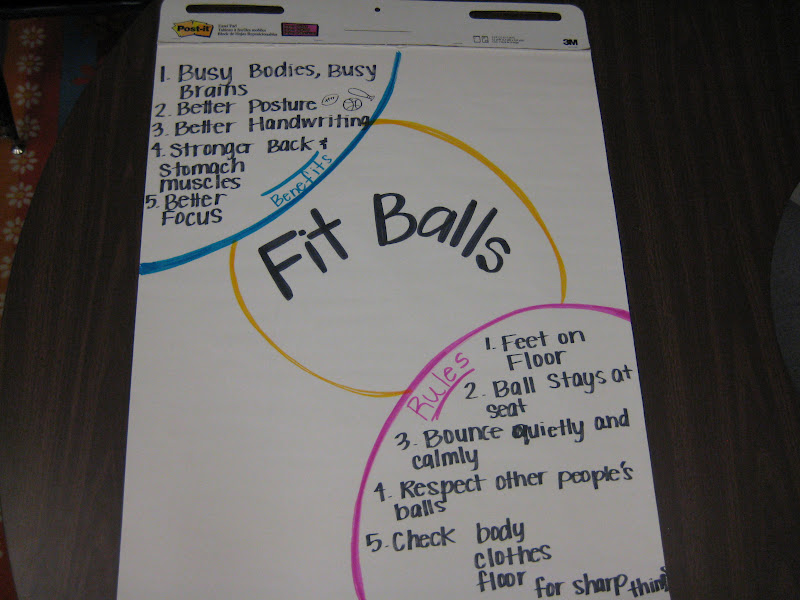 Post-it
3M
1. Busy Bodies, Busy
Brains
2. Better Posture
3. Better Handwriting
4. Stronger Back &
Stomach
muscles
5. Better
Focus
Benefits
Fit Balls
Rules
1. Feet on
Floor
2. Ball Stays at
seat
3. Bounce quietly and
calmly
4. Respect other people's
balls
5. Check body
clothes
floor for sharp things